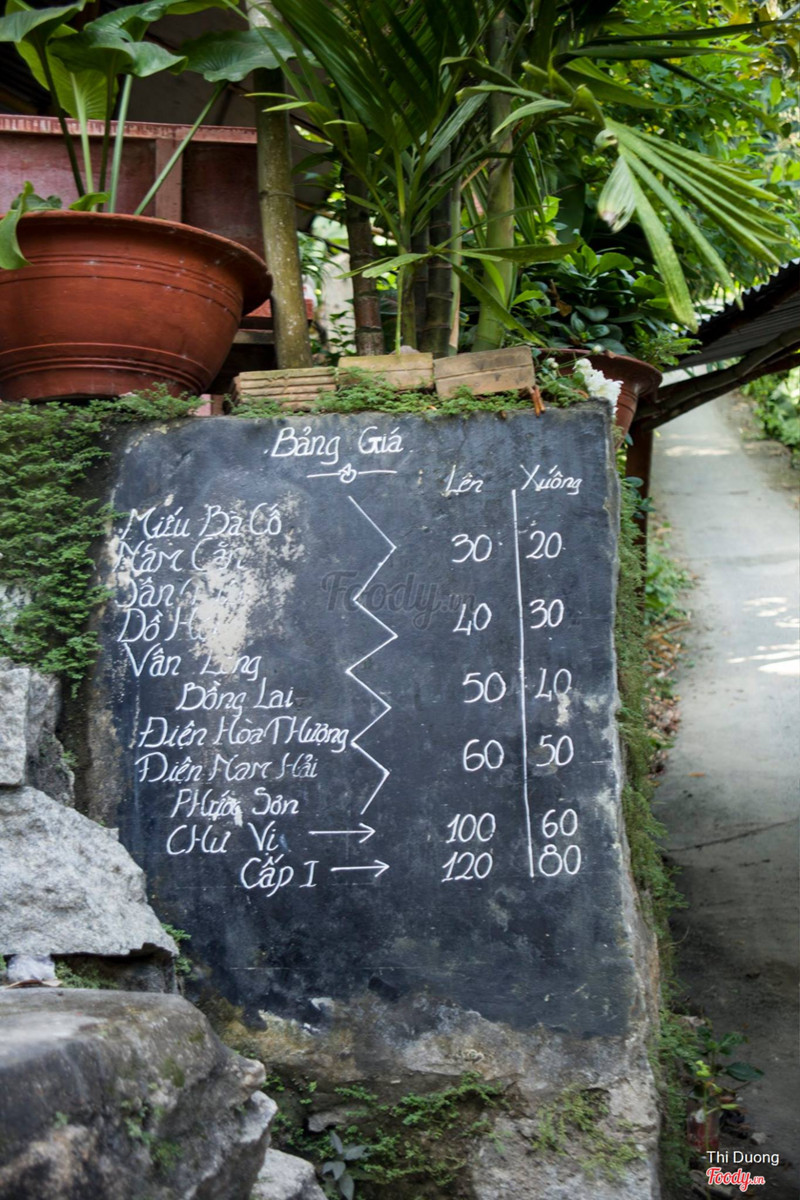 Bảng Giá
Lên Xuống
Miếu Bà Cố
Năm Căn
30 20
Đồ
40 30
Vân
50 40
Bồng Lai
Điện Hòa Thượng
60 50
Điện Nam Hải
Phước Sơn
Chư Vị → 100 60
Cấp I → 120 80
Foody.vn
Thi Duong
Foody.vn